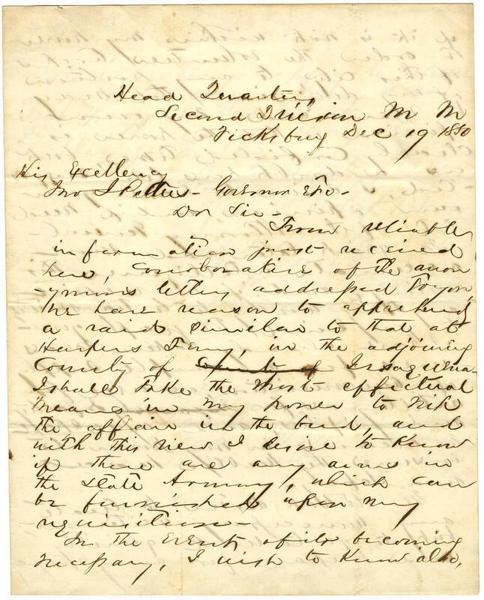 Head Quarters,
Second Division M M
Vicksburg Dec 19 1860
His Excellency
Jno J Pettus - Governor &c -
Dr Sir -
From reliable
information just received
here, corroborative of the anon
-ymous letter, addressed to you,
We have reason to apprehend
a raid similar to that at
Harpers Ferry, in the adjoining
County of Issaquena
I shall take the most effectual
means in my power to nip
the affair in the bud, and
with this view I desire to know
if there are any arms in
the State Armory, which can
be furnished upon my
requisition -
In the event of its becoming
necessary, I wish to know also,